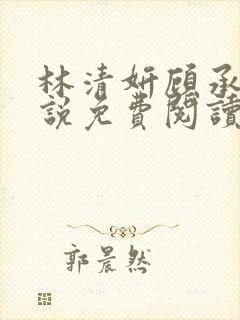 林清妍顾承
説免費閱讀
郭晨然